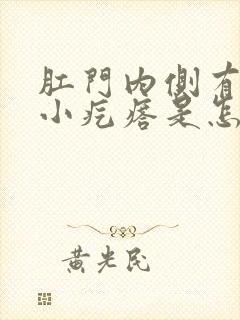 肛門内側有
小疙瘩是怎
黄光民